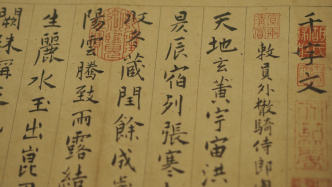 千字文
敕員外散騎侍郎
天地玄黃宇宙洪
昃辰宿列張寒
收冬藏閏餘成
陽雲騰致雨露結
生麗水玉出崑
闕珠稱